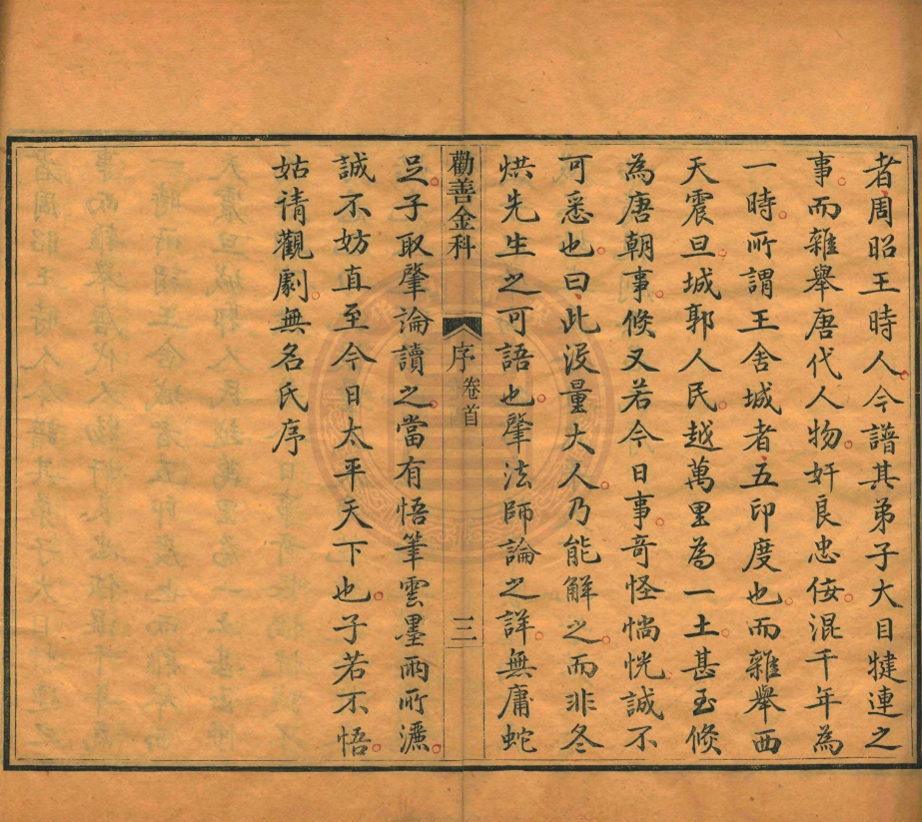 者周昭王時人今譜其弟子大目犍連之
事而雜舉唐代人物奸良忠佞混千年為
一時所謂王舍城者五印度也而雜舉西
天震旦城郭人民越萬里為一土甚至倐
為唐朝事倐又若今日事竒怪惝恍誠不
可悉也曰此沒量大人乃能解之而非冬
烘先生之可語也肇法師論之詳無庸蛇
勸善金科 序 卷首 三
足子取肇論讀之當有悟筆雲墨雨所灑
誠不妨直至今日太平天下也子若不悟
姑請觀劇無名氏序